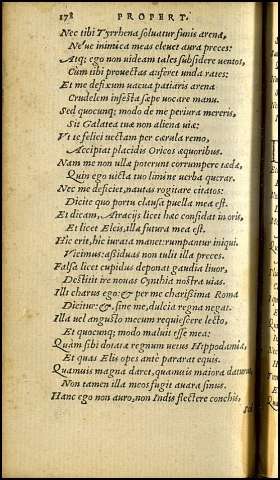 178 PROPERT.
Nec tibi Tyrrhena soluatur funis arena,
Ne'ue inimica meas eleuet aura preces:
Atq; ego non uideam tales subsidere uentos,
Cum tibi prouectas auferet unda rates:
Et me defixum uacua patiaris arena
Crudelem infesta sæpe uocare manu.
Sed quocunq; modo de me periura mereris,
Sit Galatea tuæ non aliena uiæ:
Vt te felici uectam per cærula remo,
Accipiat placidis Oricos æquoribus.
Nam me non ullæ poterunt corrumpere tædæ,
Quin ego uicta tuo limine uerba querar.
Nec me deficiet, nautas rogitare citatos:
Dicite quo portu clausa puella mea est.
Et dicam, Atracijs licet hæc consîdat in oris,
Et licet Eleis, illa futura mea est.
Hîc erit, hîc iurata manet: rumpantur iniqui.
Vicimus: aßiduas non tulit illa preces.
Falsa licet cupidus deponat gaudia liuor,
Destitit ire nouas Cynthia nostra uias.
Illi charus ego: & per me charißima Roma
Dicitur: & sine me, dulcia regna negat.
Illa uel angusto mecum requiescere lecto,
Et quocunq; modo maluit esse mea:
Quàm sibi dotatæ regnum uetus Hippodamiæ,
Et quas Elis opes antè pararat equis.
Quamuis magna daret, quamuis maiora daturus,
Non tamen illa meos fugit auara sinus.
Hanc ego non auro, non Indis flectere conchis,